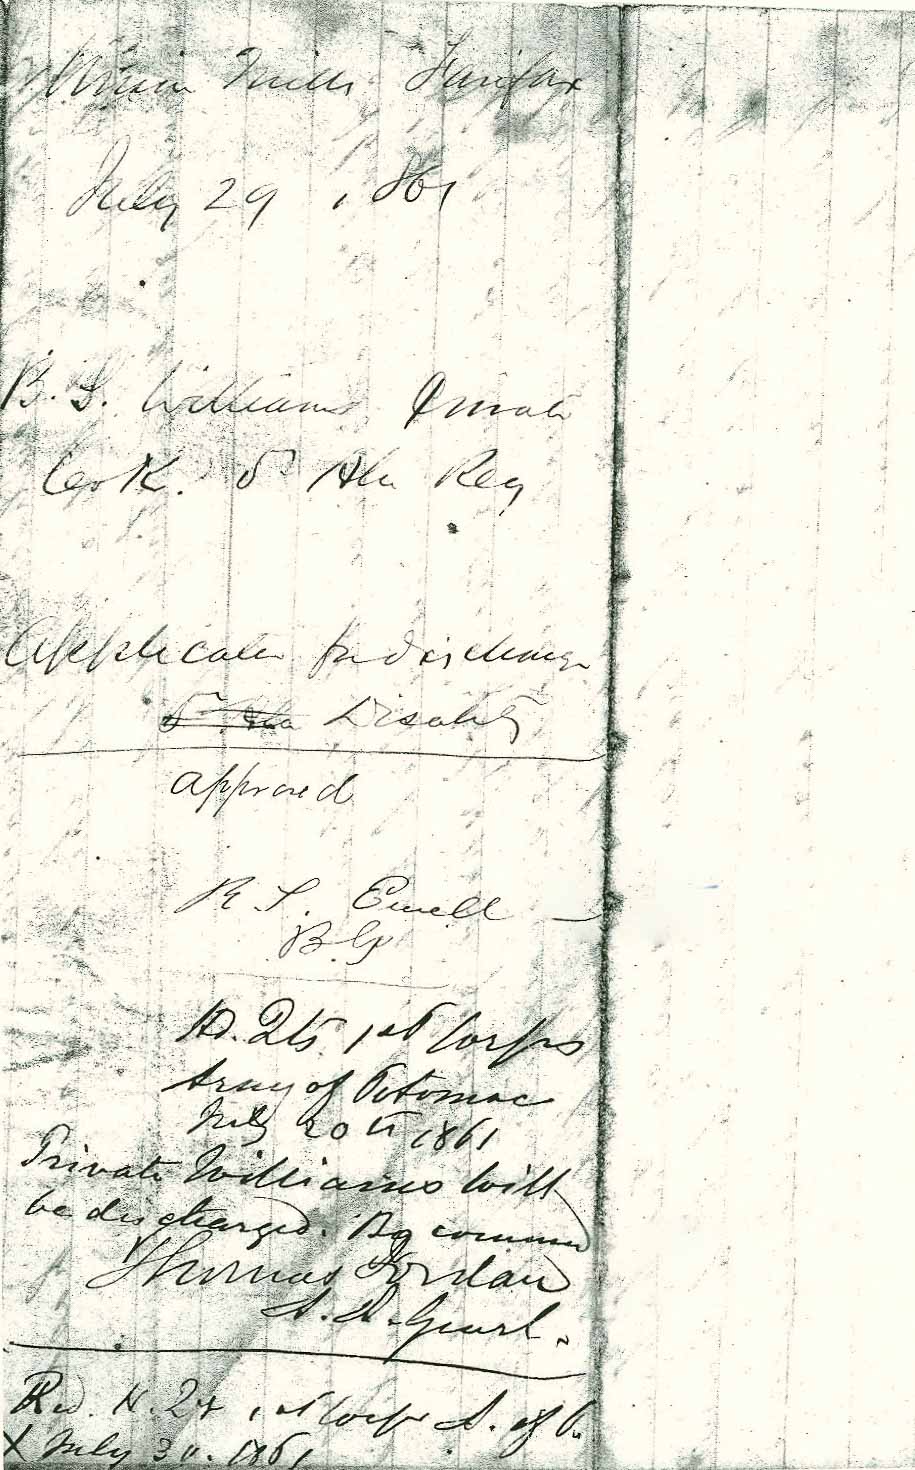 Mills Fairfax
July 29, 1861
B. S. Williams Private
Co K. 5 Ala Reg
Application for discharge
5 Ala Disability
approved
R. S. Ewell
B.G
Hd. Qts 1st Corps
Army of Potomac
July 30th 1861
Private Williams will
be discharged. By comman
Thomas Jordan
A. A. Genrl.
Red. H. Qr 1st Corps A. of P.
X July 30. 1861